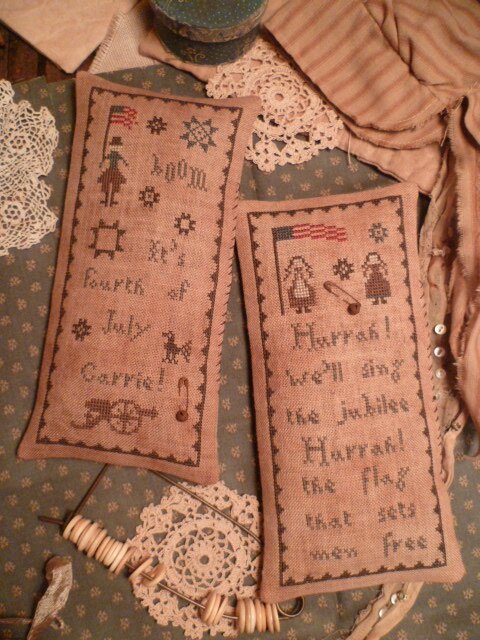 boom
It's
fourth of
July
Carrie!
Hurrah!
we'll sing
the jubilee
Hurrah!
the flag
that sets
men free